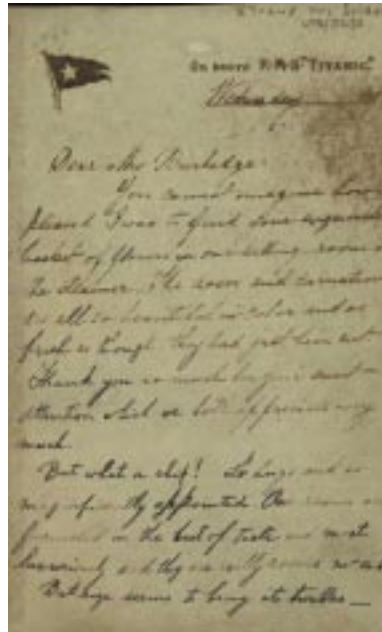 On board R.M.S. "TITANIC."
Wednesday
Dear Mrs Burbidge:
You cannot imagine how
pleased I was to find your
basket of flowers in our sitting room on
the steamer. The roses and carnations
are all so beautiful in color and as
fresh as though they had just been cut.
Thank you so much for your sweet
attention which we both appreciate very
much.
But what a ship! So huge and so
magnificently appointed. Our rooms are
furnished in the best of taste and most
luxuriously and they are really rooms not
But size seems to bring its troubles —